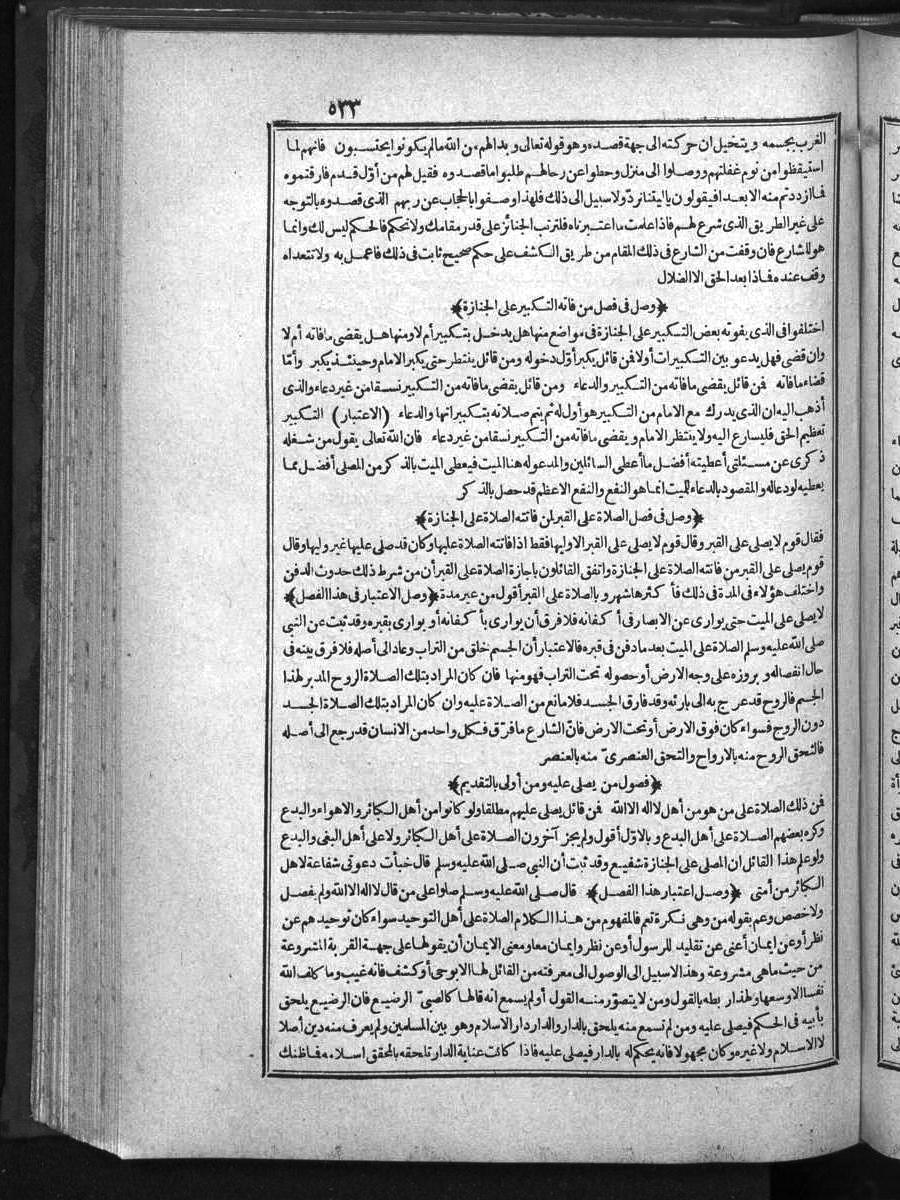 ٥٣٣
الغرب بجسمه ويتخيل ان حركته الى جهة قصده وهو قوله تعالى وبدا لهم من الله ما لم يكونوا يحتسبون فانهم لما
استيقظوا من نوم غفلتهم ووصلوا الى منزل وحطوا عن رحالهم طلبوا ما قصدوه فقيل لهم من أول قدم فارقتموه
فما ازددتم منه الا بعدا فيقولون ياليتنا نرد ولا سبيل الى ذلك فلهذا وصفوا بالحجاب عن ربهم الذى قصدوه بالتوجه
على غير الطريق الذى شرع لهم فاذا علمت ما اعتبرناه فلترتب الجنائز على قدر مقامك ولا تحكم فالحكم ليس لك وانما
هو للشارع فان وقفت من الشارع فى ذلك المقام من طريق الكشف على حكم صحيح ثابت فى ذلك فاعمل به ولا تتعداه
وقف عنده فماذا بعد الحق الا الضلال
﴿وصل فى فصل من فاته التكبير على الجنازة﴾
اختلفوا فى الذى يفوته بعض التكبير على الجنازة فى مواضع منها هل يدخل بتكبير أم لا ومنها هل يقضى ما فاته أم لا
وان قضى فهل يدعو بين التكبيرات أولا فمن قائل يكبر أول دخوله ومن قائل ينتظر حتى يكبر الامام وحينئذ يكبر وأما
قضاء ما فاته فمن قائل يقضى ما فاته من التكبير والدعاء ومن قائل يقضى ما فاته من التكبير نسقا من غير دعاء والذى
أذهب اليه ان الذى يدرك مع الامام من التكبير هو أول له ثم يتم صلاته بتكبيراتها والدعاء (الاعتبار) التكبير
تعظيم الحق فليسارع اليه ولا ينتظر الامام ويقضى ما فاته من التكبير نسقا من غير دعاء فان الله تعالى يقول من شغله
ذكرى عن مسئلتى أعطيته أفضل ما أعطى السائلين والمدعو له هنا الميت فيعطى الميت بالذكر من المصلى أفضل مما
يعطيه لو دعا له والمقصود بالدعاء للميت انما هو النفع والنفع الاعظم قد حصل بالذكر
﴿وصل فى فصل الصلاة على القبر لمن فاتته الصلاة على الجنازة﴾
فقال قوم لا يصلى على القبر وقال قوم لا يصلى على القبر الا وليها فقط اذا فاتته الصلاة عليها وكان قد صلى عليها غير وليها وقال
قوم يصلى على القبر من فاتته الصلاة على الجنازة واتفق القائلون باجازة الصلاة على القبر أن من شرط ذلك حدوث الدفن
واختلف هؤلاء فى المدة فى ذلك فأكثرها شهر وبالصلاة على القبر أقول من غير مدة ﴿وصل الاعتبار فى هذا الفصل﴾
لا يصلى على الميت حتى يوارى عن الابصار فى أكفانه فلا فرق أن يوارى بأكفانه أو يوارى بقبره وقد ثبت عن النبى
صلى الله عليه وسلم الصلاة على الميت بعد ما دفن فى قبره فالاعتبار أن الجسم خلق من التراب وعاد الى أصله فلا فرق بينه فى
حال انفصاله وبروزه على وجه الارض أو حصوله تحت التراب فهو منها فان كان المراد بتلك الصلاة الروح المدبر لهذا
الجسم فالروح قد عرج به الى بارئه وقد فارق الجسد فلا مانع من الصلاة عليه وان كان المراد بتلك الصلاة الجسد
دون الروح فسواء كان فوق الارض أو تحت الارض فان الشارع ما فرق فكل واحد من الانسان قد رجع الى أصله
فالتحق الروح منه بالارواح والتحق العنصرى منه بالعنصر
﴿فصول من يصلى عليه ومن أولى بالتقديم﴾
فمن ذلك الصلاة على من هو من أهل لا اله الا الله فمن قائل يصلى عليهم مطلقا ولو كانوا من أهل الكبائر والاهواء والبدع
وكره بعضهم الصلاة على أهل البدع وبالاول أقول ولم يجز آخرون الصلاة على أهل الكبائر ولا على أهل البغى والبدع
ولو علم هذا القائل ان المصلى على الجنازة شفيع وقد ثبت أن النبى صلى الله عليه وسلم قال خبأت دعوتى شفاعة لاهل
الكبائر من أمتى ﴿وصل اعتبار هذا الفصل﴾ قال صلى الله عليه وسلم صلوا على من قال لا اله الا الله ولم يفصل
ولا خصص وعم بقوله من وهى نكرة تعم فالمفهوم من هذا الكلام الصلاة على أهل التوحيد سواء كان توحيدهم عن
نظر أو عن ايمان أعنى عن تقليد للرسول أو عن نظر وايمان معا ومعنى الايمان أن يقولها على جهة القربة المشروعة
من حيث ما هى مشروعة وهذا لا سبيل الى الوصول الى معرفته من القائل لها الا بوحى أو كشف فانه غيب وما كلف الله
نفسا الا وسعها ولهذا ربطه بالقول ومن لا يتصور منه القول أو لم يسمع انه قالها كالصبى الرضيع فان الرضيع يلحق
بأبيه فى الحكم فيصلى عليه ومن لم تسمع منه يلحق بالدار والدار دار الاسلام وهو بين المسلمين ولم يعرف منه دين أصلا
لا الاسلام ولا غيره وكان مجهولا فانه يحكم له بالدار فيصلى عليه فاذا كانت عناية الدار تلحقه بالمحقق اسلامه فما ظنك